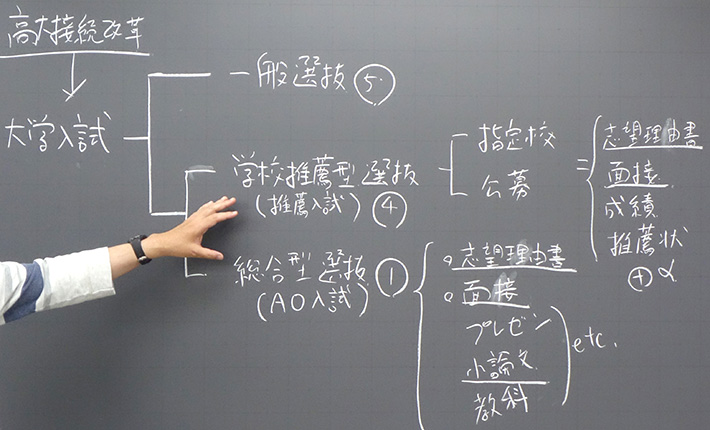 高大接続改革
大学入試
一般選抜 ⑤
学校推薦型選抜
(推薦入試) ④
指定校
公募
=
志望理由書
面接
成績
推薦状
⊕ α
総合型選抜 ①
(AO入試)
。志望理由書
。面接
プレゼン
小論文
教科
etc.